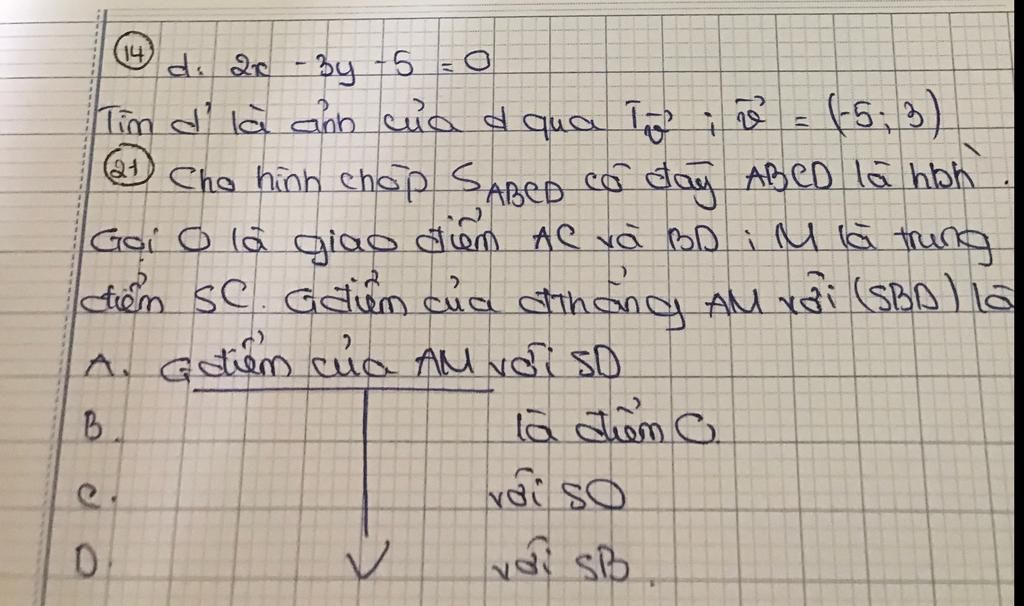 14 d: 2x - 3y - 5 = 0
Tìm d' là ảnh của d qua Tv⃗ ; v⃗ = (-5; 3)
21 Cho hình chóp SABCD có đáy ABCD là hbh.
Gọi O là giao điểm AC và BD ; M là trung
điểm SC. Gđiểm của đthẳng AM với (SBD) là
A. Gđiểm của AM với SD
B. là điểm O.
C. với SO
D. với SB.